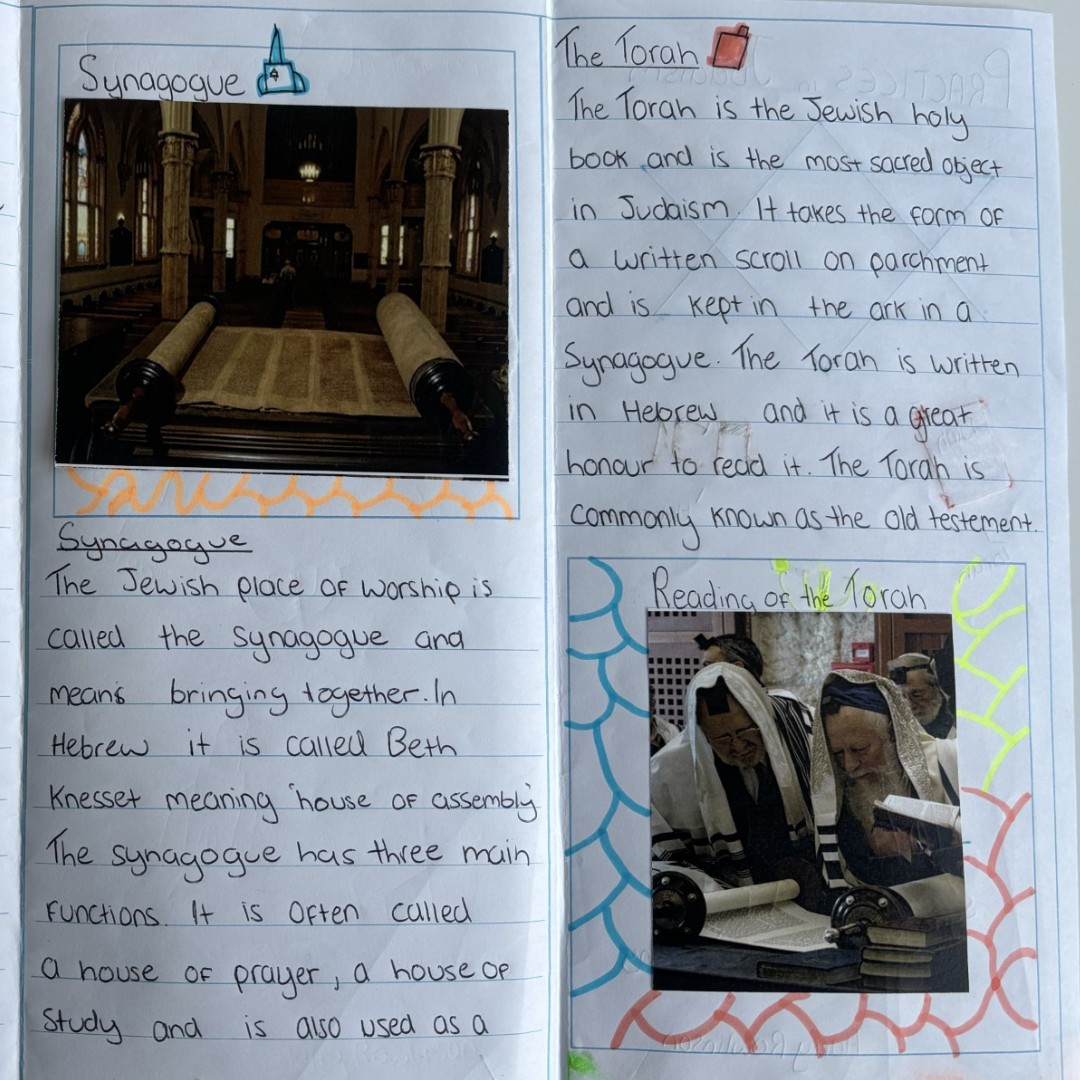 Synagogue
Synagogue
The Jewish place of worship is
called the synagogue and
means bringing together. In
Hebrew it is called Beth
Knesset meaning 'house of assembly'
The synagogue has three main
functions. It is often called
a house of prayer, a house of
study and is also used as a
The Torah
The Torah is the Jewish holy
book and is the most sacred object
in Judaism. It takes the form of
a written scroll on parchment
and is kept in the ark in a
Synagogue. The Torah is written
in Hebrew and it is a great
honour to read it. The Torah is
commonly known as the old testement.
Reading of the Torah